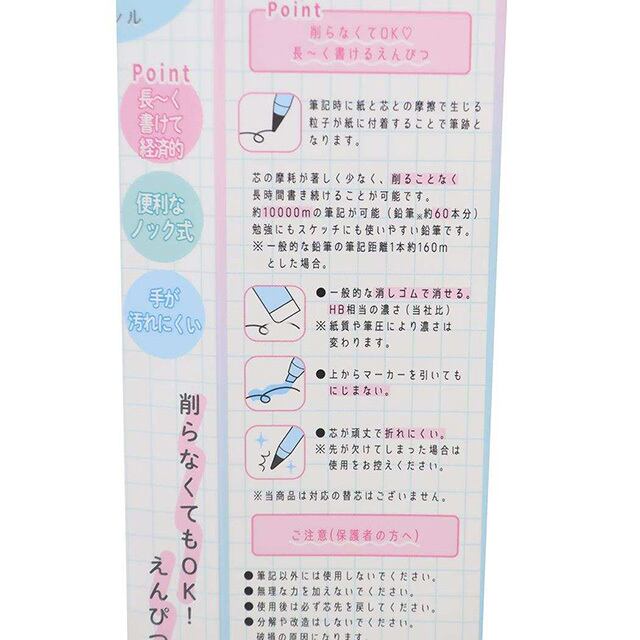 ル
Point
長〜く
書けて
経済的
便利な
ノック式
手が
汚れにくい
削らなくてもOK!
えんぴつ
Point
削らなくてOK♡
長〜く書けるえんぴつ
筆記時に紙と芯との摩擦で生じる
粒子が紙に付着することで筆跡と
なります。
芯の摩耗が著しく少なく、削ることなく
長時間書き続けることが可能です。
約10000mの筆記が可能（鉛筆※約60本分）
勉強にもスケッチにも使いやすい鉛筆です。
※一般的な鉛筆の筆記距離1本約160m
とした場合。
●一般的な消しゴムで消せる。
HB相当の濃さ（当社比）
※紙質や筆圧により濃さは
変わります。
●上からマーカーを引いても
にじまない。
●芯が頑丈で折れにくい。
※先が欠けてしまった場合は
使用をお控えください。
※当商品は対応の替芯はございません。
ご注意(保護者の方へ)
●筆記以外には使用しないでください。
●無理な力を加えないでください。
●使用後は必ず芯先を戻してください。
●分解や改造はしないでください。
破損の原因になります。